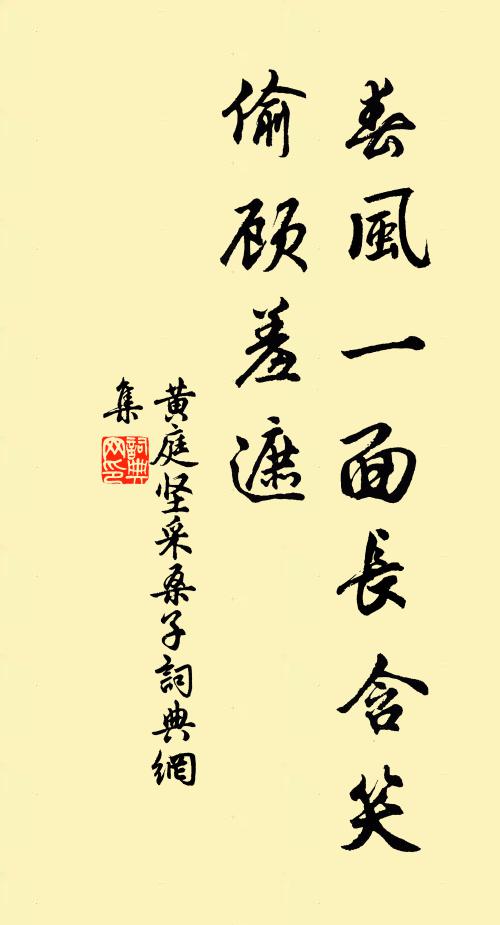 春風一面長含笑
偷顾羞遮
黄庭坚采桑子詞典網
集
詞典網印